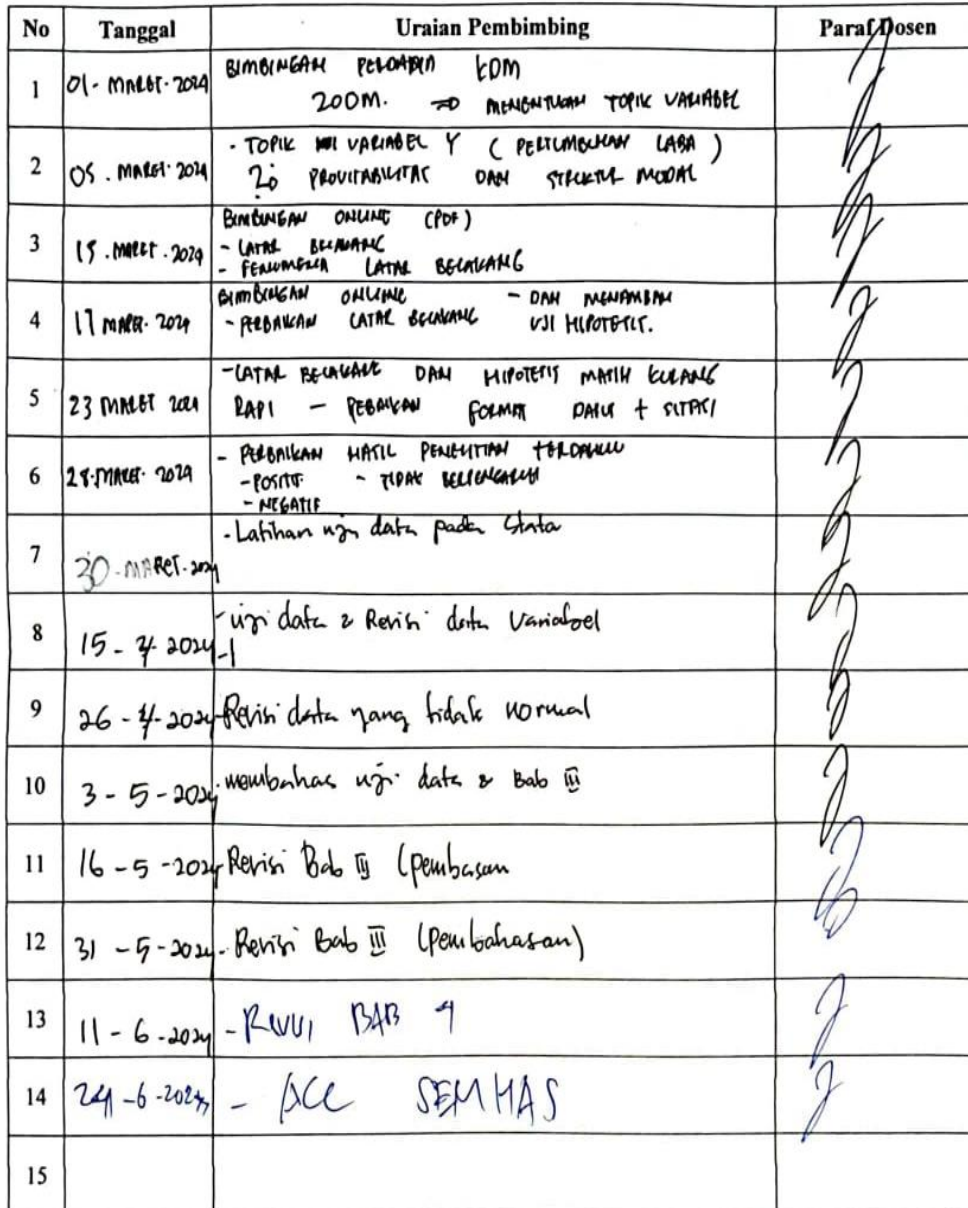 No Tanggal Uraian Pembimbing Paraf Dosen
1 01-MARET-2024 BIMBINGAN
ZOOM. => MENENTUKAN TOPIK VARIABEL
2 05. MARET. 2024 - TOPIK VARIABEL Y (PERTUMBUHAN LABA)
PROVITABILITAS DAN STRUKTUR MODAL
3 15. MARET. 2024 BIMBINGAN ONLINE (PDF)
- LATAR BELAKANG
- FENOMENA LATAR BELAKANG
4 17 MARET. 2024 BIMBINGAN ONLINE - DAN MENAMBAH
- PERBAIKAN LATAR BELAKANG UJI HIPOTESIS.
5 23 MARET 2024 - LATAR BELAKANG DAN HIPOTESIS MASIH KURANG
RAPI - PEBAIKAN FORMAT + SITASI
6 28. MARET. 2024 - PERBAIKAN HASIL PENELITIAN TERDAHULU
- POSITIF - TIDAK BERPENGARUH
- NEGATIF
7 30-MARET-2024 - Latihan uji data pada Stata
8 15-4-2024 - uji data & Revisi data Variabel
9 26-4-2024 - Revisi data yang tidak normal
10 3-5-2024 - membahas uji data & Bab III
11 16-5-2024 - Revisi Bab III (pembasan
12 31-5-2024 - Revisi Bab III (pembahasan)
13 11-6-2024 - BAB 4
14 24-6-2024 - ACC SEMHAS
15